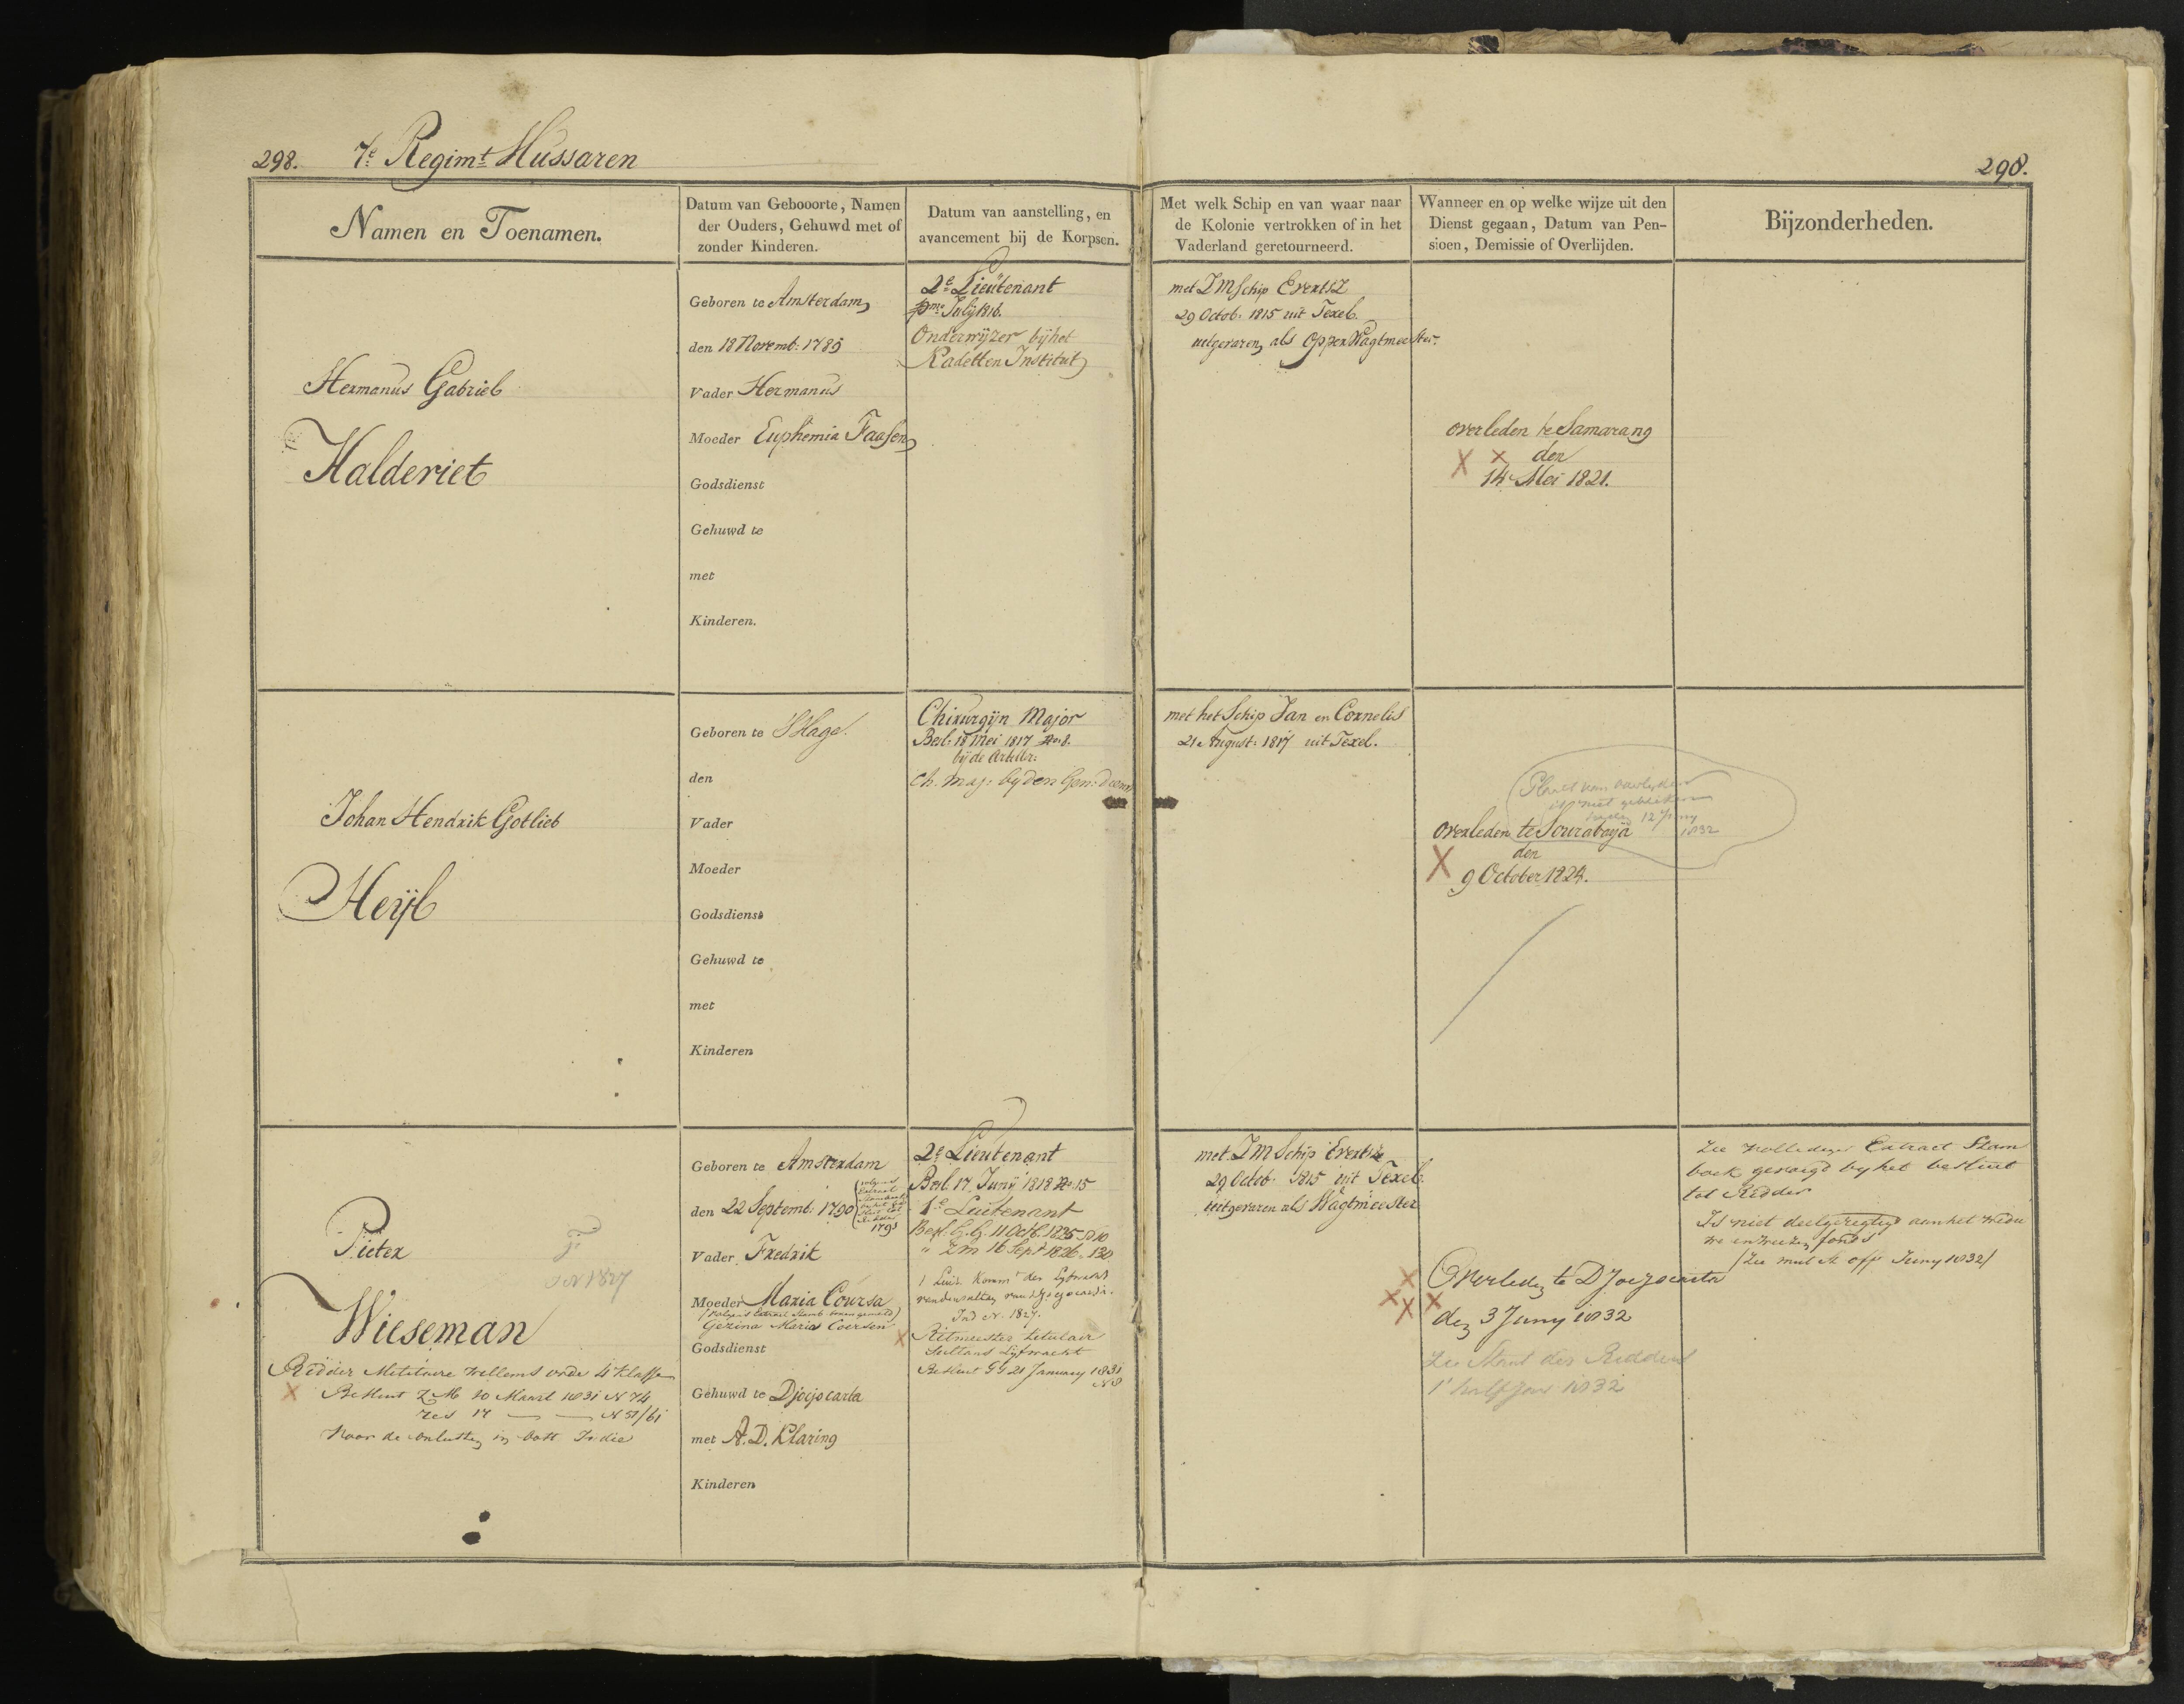 298. 7e Regimt Hussaren
298.
Namen en Toenamen.
Datum van Gebooorte, Namen
der Ouders, Gehuwd met of
zonder Kinderen.
Datum van aanstelling, en
avancement bij de Korpsen.
Met welk Schip en van waar naar
de Kolonie vertrokken of in het
Vaderland geretourneerd.
Wanneer en op welke wijze uit den
Dienst gegaan, Datum van Pen-
sioen, Demissie of Overlijden.
Bijzonderheden.
Hermanus Gabriel
Halderiet
Geboren te Amsterdam
den 18 Novemb: 1785
Vader Hermanus
Moeder Euphemia Faasen
Godsdienst
Gehuwd te
met
Kinderen.
2e Lieutenant
pmo July 1816.
Onderwijzer bij het
Kadetten Institut
met ZMSchip Evertsz
29 Octob. 1815 uit Texel
uitgevaren als OpperWagtmeester.
overleden te Samarang
den
14 Mei 1821.
Johan Hendrik Gotlieb
Heijl
Geboren te SHage.
den
Vader
Moeder
Godsdienst
Gehuwd te
met
Kinderen
Chirurgijn Major
Besl: 18 Mei 1817 No 8.
bij de Artiller:
Ch. Maj: by den Gen:
met het Schip Jan en Cornelis
21 August: 1817 uit Texel.
Plaats van overlyden
is niet gebleken
12 Juny
1832
overleden te Sourabaya
den
9 October 1824.
Pieter
N 1827
Wieseman
Ridder Militaire Willems orde 4 Klasse
Besluit ZM 10 Maart 1831 N 74
Res 17 — — N 51/61
Voor de onlusten in Oost Indie
Geboren te Amsterdam
den 22 Septemb: 1790
volgens
Extract
Stamboek
1793
Vader Fredrik
Moeder Maria Coursa
(volgens Extract Stamb. bovengemeld)
Gezina Maria Coersen
Godsdienst
Gehuwd te Djocjocarta
met A.D. Klaring
Kinderen
2e Lieutenant
Besl. 17 Junij 1818 No 15
1e Lieutenant
Besl. G.G. 11 Octb. 1825 No 10
" ZM 16 Sept 1826 " 130
1 Luit. Komm der Lyfwacht
van den sultan van
Ind N. 1827.
Ritmeester titulair
Sultans Lyfwacht
Besluit GG 21 January 1831
N 8
met ZM Schip Evertsz
29 Octob. 1815 uit Texel.
uitgevaren als Wagtmeester
Overleden te Djocjocarta
den 3 Juny 1832
Zie Staat der Ridders
1e half Jaar 1832
Zie volledigen Extract Stam
boek gevoegd by het besluit
tot Ridder
Is niet deelgeregtigd aan het Wedu
we en weezen fonds
(Zie mut st off Juny 1832)